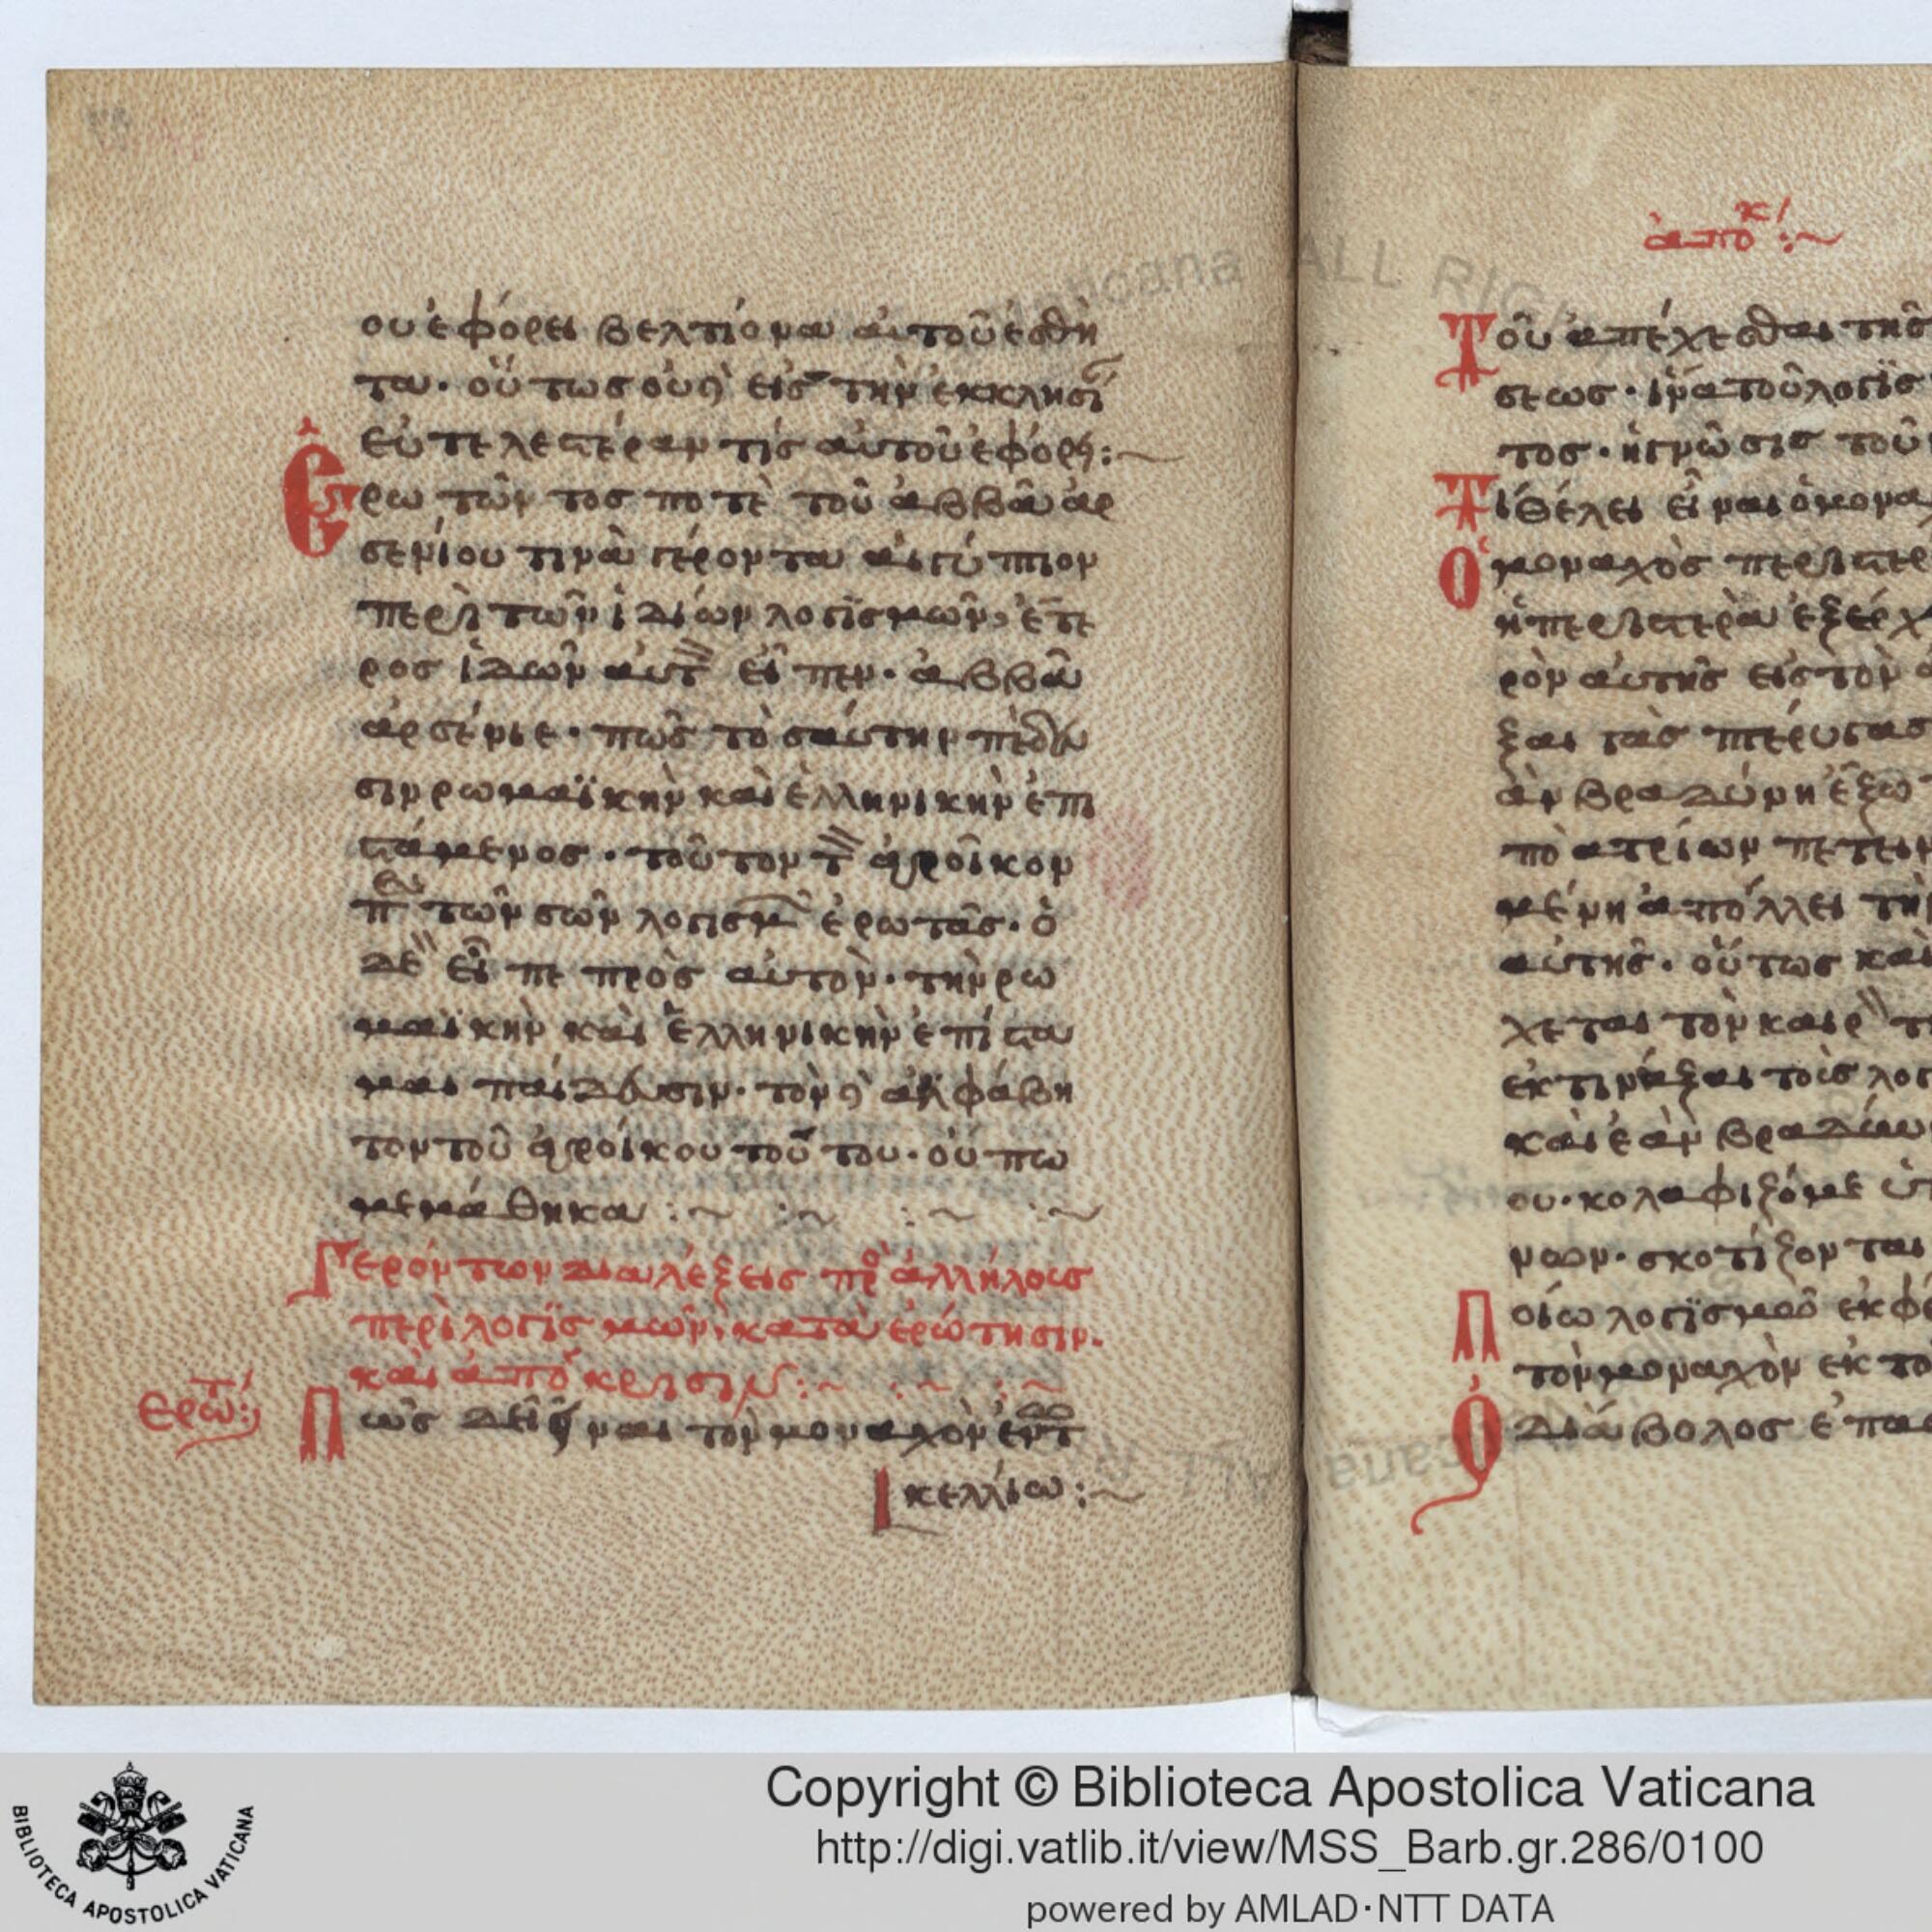 ου ἐφόρει βελτίονα αὐτοῦ ἐσθῆ
τα· οὕτως οὐδ εἰς τὴν ἐκκλησί
εὐτελεστέραν τίς αὐτοῦ ἐφόρει:~
Ἐρωτῶντος ποτὲ τοῦ ἀββᾶ ἀρ
σενίου τινὰ γέροντα αἰγύπτιον
περὶ τῶν ἰδίων λογισμῶν, ἕτε
ρος ἰδὼν αὐτ εἶπεν· ἀββᾶ
ἀρσένιε· πῶς τὸσαύτην πέδευ
σιν ρωμαϊκὴν καὶ ἑλληνικὴν ἐπι
στάμενος· τοῦτον τ ἀγροῖκον
π τῶν σῶν λογισμ ἐρωτᾶς· ὁ
δὲ εἶπε πρὸς αὐτὸν· τὴν ρω
μαϊκὴν καὶ ἑλληνικὴν ἐπίστα
μαι παίδευσιν· τὸν δ ἀλφάβη
τον τοῦ ἀγροίκου τούτου· οὔπω
μεμάθηκα :~ :~ :~ :~
Γερόντων διαλέξεις πρ ἀλλήλους
περὶ λογισμῶν, κατὰ ἐρώτησιν·
καὶ ἀπόκρισιν :~ :~ :~
ερώτ: Πῶς δεῖ εἶναι τὸν μοναχὸν ἐν τ
κελλίω :~
ἀποκ :~
Τοῦ ἀπέχεσθαι τῆς
σεως· ἵνα τοῦ λογισ
τος· ἡ γνῶσις τοῦ
Τί θέλει εἶναι ὁ μονα
Ὁ μοναχὸς περιστερ
ἡ περιστερὰ ἐξέρχ
ρὸν αὐτῆς εἰς τὸν
ξαι τὰς πτέρυγας
ἂν βραδύνη ἔξω
πὸ ἀγρίων πετειν
μένη ἀπόλλει τὴ
αὐτῆς. οὕτως καὶ
χεται τὸν καιρ τ
ἐκτινάξαι τοὺς λογ
καὶ ἐὰν βραδύν
ου· κολαφιζόμε ὑ
μόων· σκοτίζονται
Ποίω λογισμοῦ ἐκφέ
τὸν μοναχὸν ἐκ το
Ὁ διάβολος ἐπα
Copyright © Biblioteca Apostolica Vaticana
http://digi.vatlib.it/view/MSS_Barb.gr.286/0100
powered by AMLAD·NTT DATA
BIBLIOTECA APOSTOLICA VATICANA